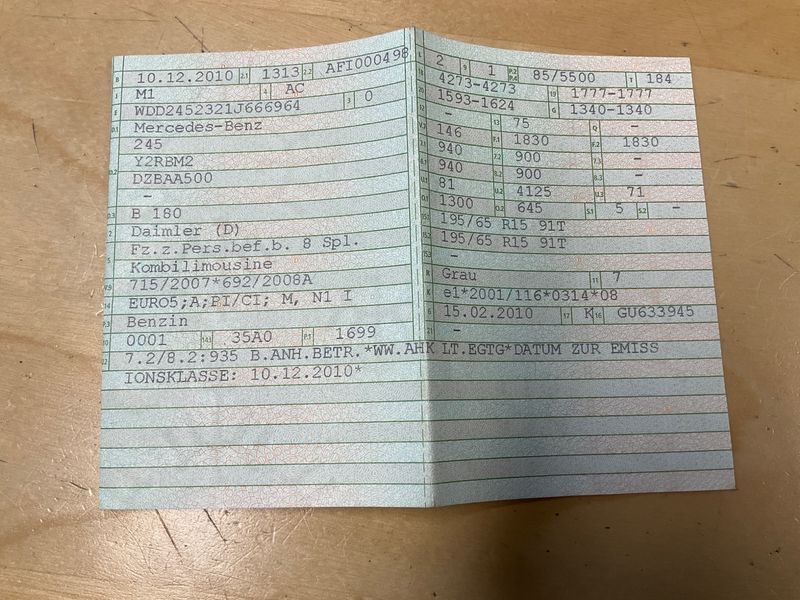 B 10.12.2010 2.1 1313 2.2 AFI000498
J M1 4 AC
E WDD2452321J666964 3 0
D.1 Mercedes-Benz
245
D.2 Y2RBM2
DZBAA500
–
D.3 B 180
2 Daimler (D)
Fz.z.Pers.bef.b. 8 Spl.
5 Kombilimousine
V.9 715/2007*692/2008A
14 EURO5;A;PI/CI; M, N1 I
P.3 Benzin
10 0001 14.1 35A0 P.1 1699
22 7.2/8.2:935 B.ANH.BETR.*WW.AHK LT.EGTG*DATUM ZUR EMISS
IONSKLASSE: 10.12.2010*
2 9 1 P.2 P.4 85/5500 T 184
18 4273-4273 19 1777-1777
20 1593-1624 G 1340-1340
12 – 13 75 Q –
V.7 146 F.1 1830 F.2 1830
7.1 940 7.2 900 7.3 –
8.1 940 8.2 900 8.3 –
U.1 81 U.2 4125 U.3 71
O.1 1300 O.2 645 S.1 5 S.2 –
15.1 195/65 R15 91T
15.2 195/65 R15 91T
15.3 –
R Grau 11 7
K e1*2001/116*0314*08
6 15.02.2010 17 K 16 GU633945
21 –